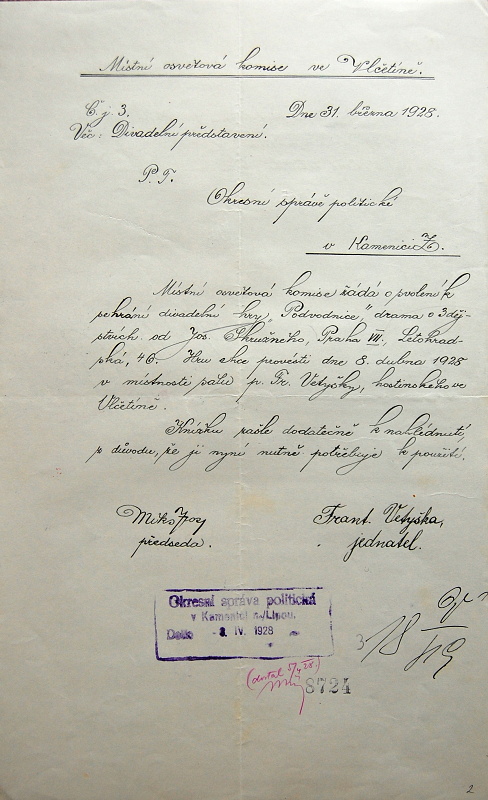 Místní osvětová komise ve Vlčetíně.
Č. j. 3.
Dne 31. března 1928.
Věc: Divadelní představení.
P. T.
Okresní správě politické
v Kamenici n/L.
Místní osvětová komise žádá o povolení k
sehrání divadelní hry „Podvodnice," drama o 3 děj-
stvích. od Jos. Skružného, Praha VII., Letohrad-
ská, 46. Hru chce provésti dne 8. dubna 1928
v místnosti sálu p. Fr. Vetyšky, hostinského ve
Vlčetíně.
Knížku zašle dodatečně k nahlédnutí,
z důvodu, že ji nyní nutně potřebuje k použití.
Miko Jos
předseda.
Frant. Vetyška,
jednatel.
Okresní správa politická
v Kamenici n./Lipou.
Došlo - 3. IV. 1928
8724
2